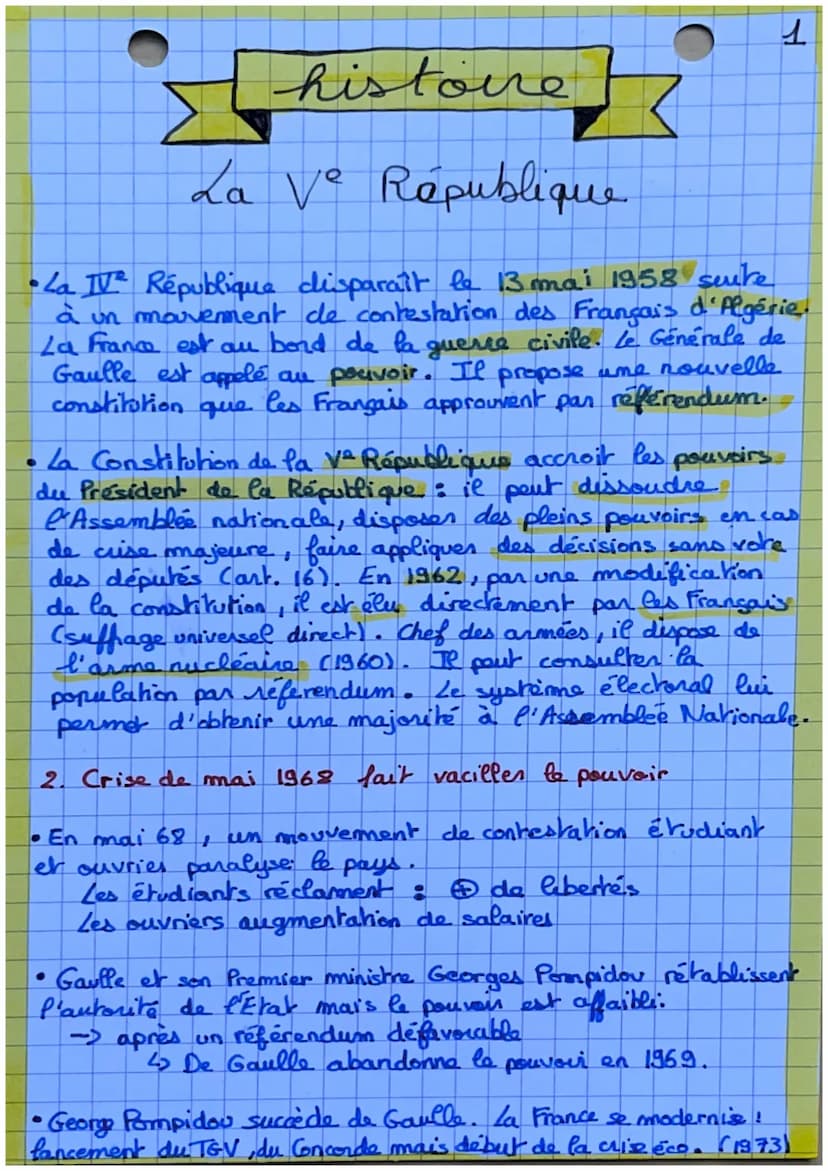 1
histoire
La Ve République
• La IVe République disparaît le 13 mai 1958 suite
à un mouvement de contestation des Français d'Algérie.
La France est au bord de la guerre civile. Le Générale de
Gaulle est appelé au pouvoir. Il propose une nouvelle
constitution que les Français approuvent par référendum.
• La Constitution de la Ve République accroit les pouvoirs
du Président de la République : il peut dissoudre
l'Assemblée nationale, disposer des pleins pouvoirs en cas
de crise majeure, faire appliquer des décisions sans vote
des députés (art. 16). En 1962, par une modification
de la constitution, il est élu directement par les Français
(suffrage universel direct). Chef des armées, il dispose de
l'arme nucléaire (1960). Il peut consulter la
population par référendum. Le système électoral lui
permet d'obtenir une majorité à l'Assemblée Nationale.
2. Crise de mai 1968 fait vaciller le pouvoir
• En mai 68, un mouvement de contestation étudiant
et ouvrier paralyse le pays.
Les étudiants réclament : ⊕ de libertés
Les ouvriers augmentation de salaires
• Gaulle et son Premier ministre Georges Pompidou rétablissent
l'autorité de l'État mais le pouvoir est affaibli:
→ après un référendum défavorable
↳ De Gaulle abandonne le pouvoir en 1969.
• George Pompidou succède de Gaulle. La France se modernise :
lancement du TGV, du Concorde mais début de la crise éco. (1973)